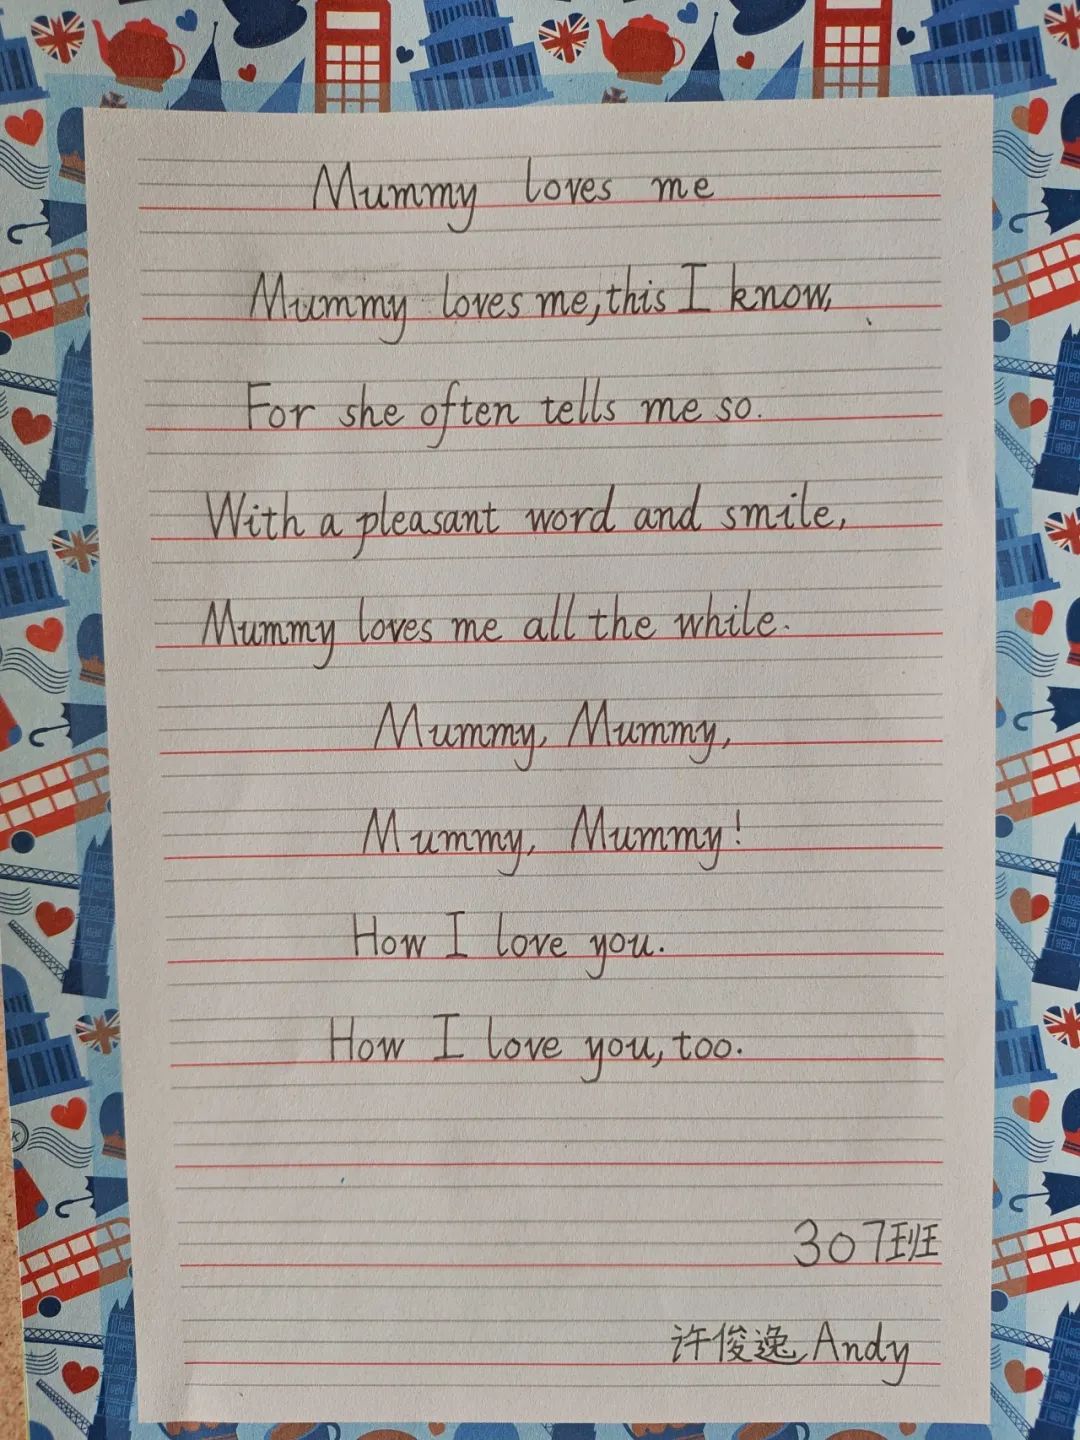 Mummy loves me
Mummy loves me, this I know,
For she often tells me so.
With a pleasant word and smile,
Mummy loves me all the while.
Mummy, Mummy,
Mummy, Mummy!
How I love you.
How I love you, too.
307班
许俊逸 Andy